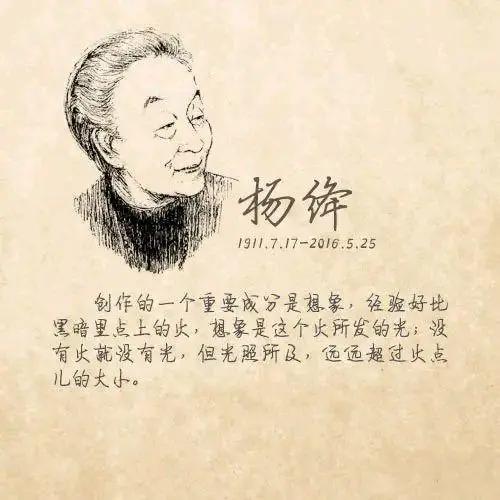 杨绛
1911.7.17-2016.5.25
创作的一个重要成分是想象，经验好比
黑暗里点上的火，想象是这个火所发的光；没
有火就没有光，但光照所及，远远超过火点
儿的大小。